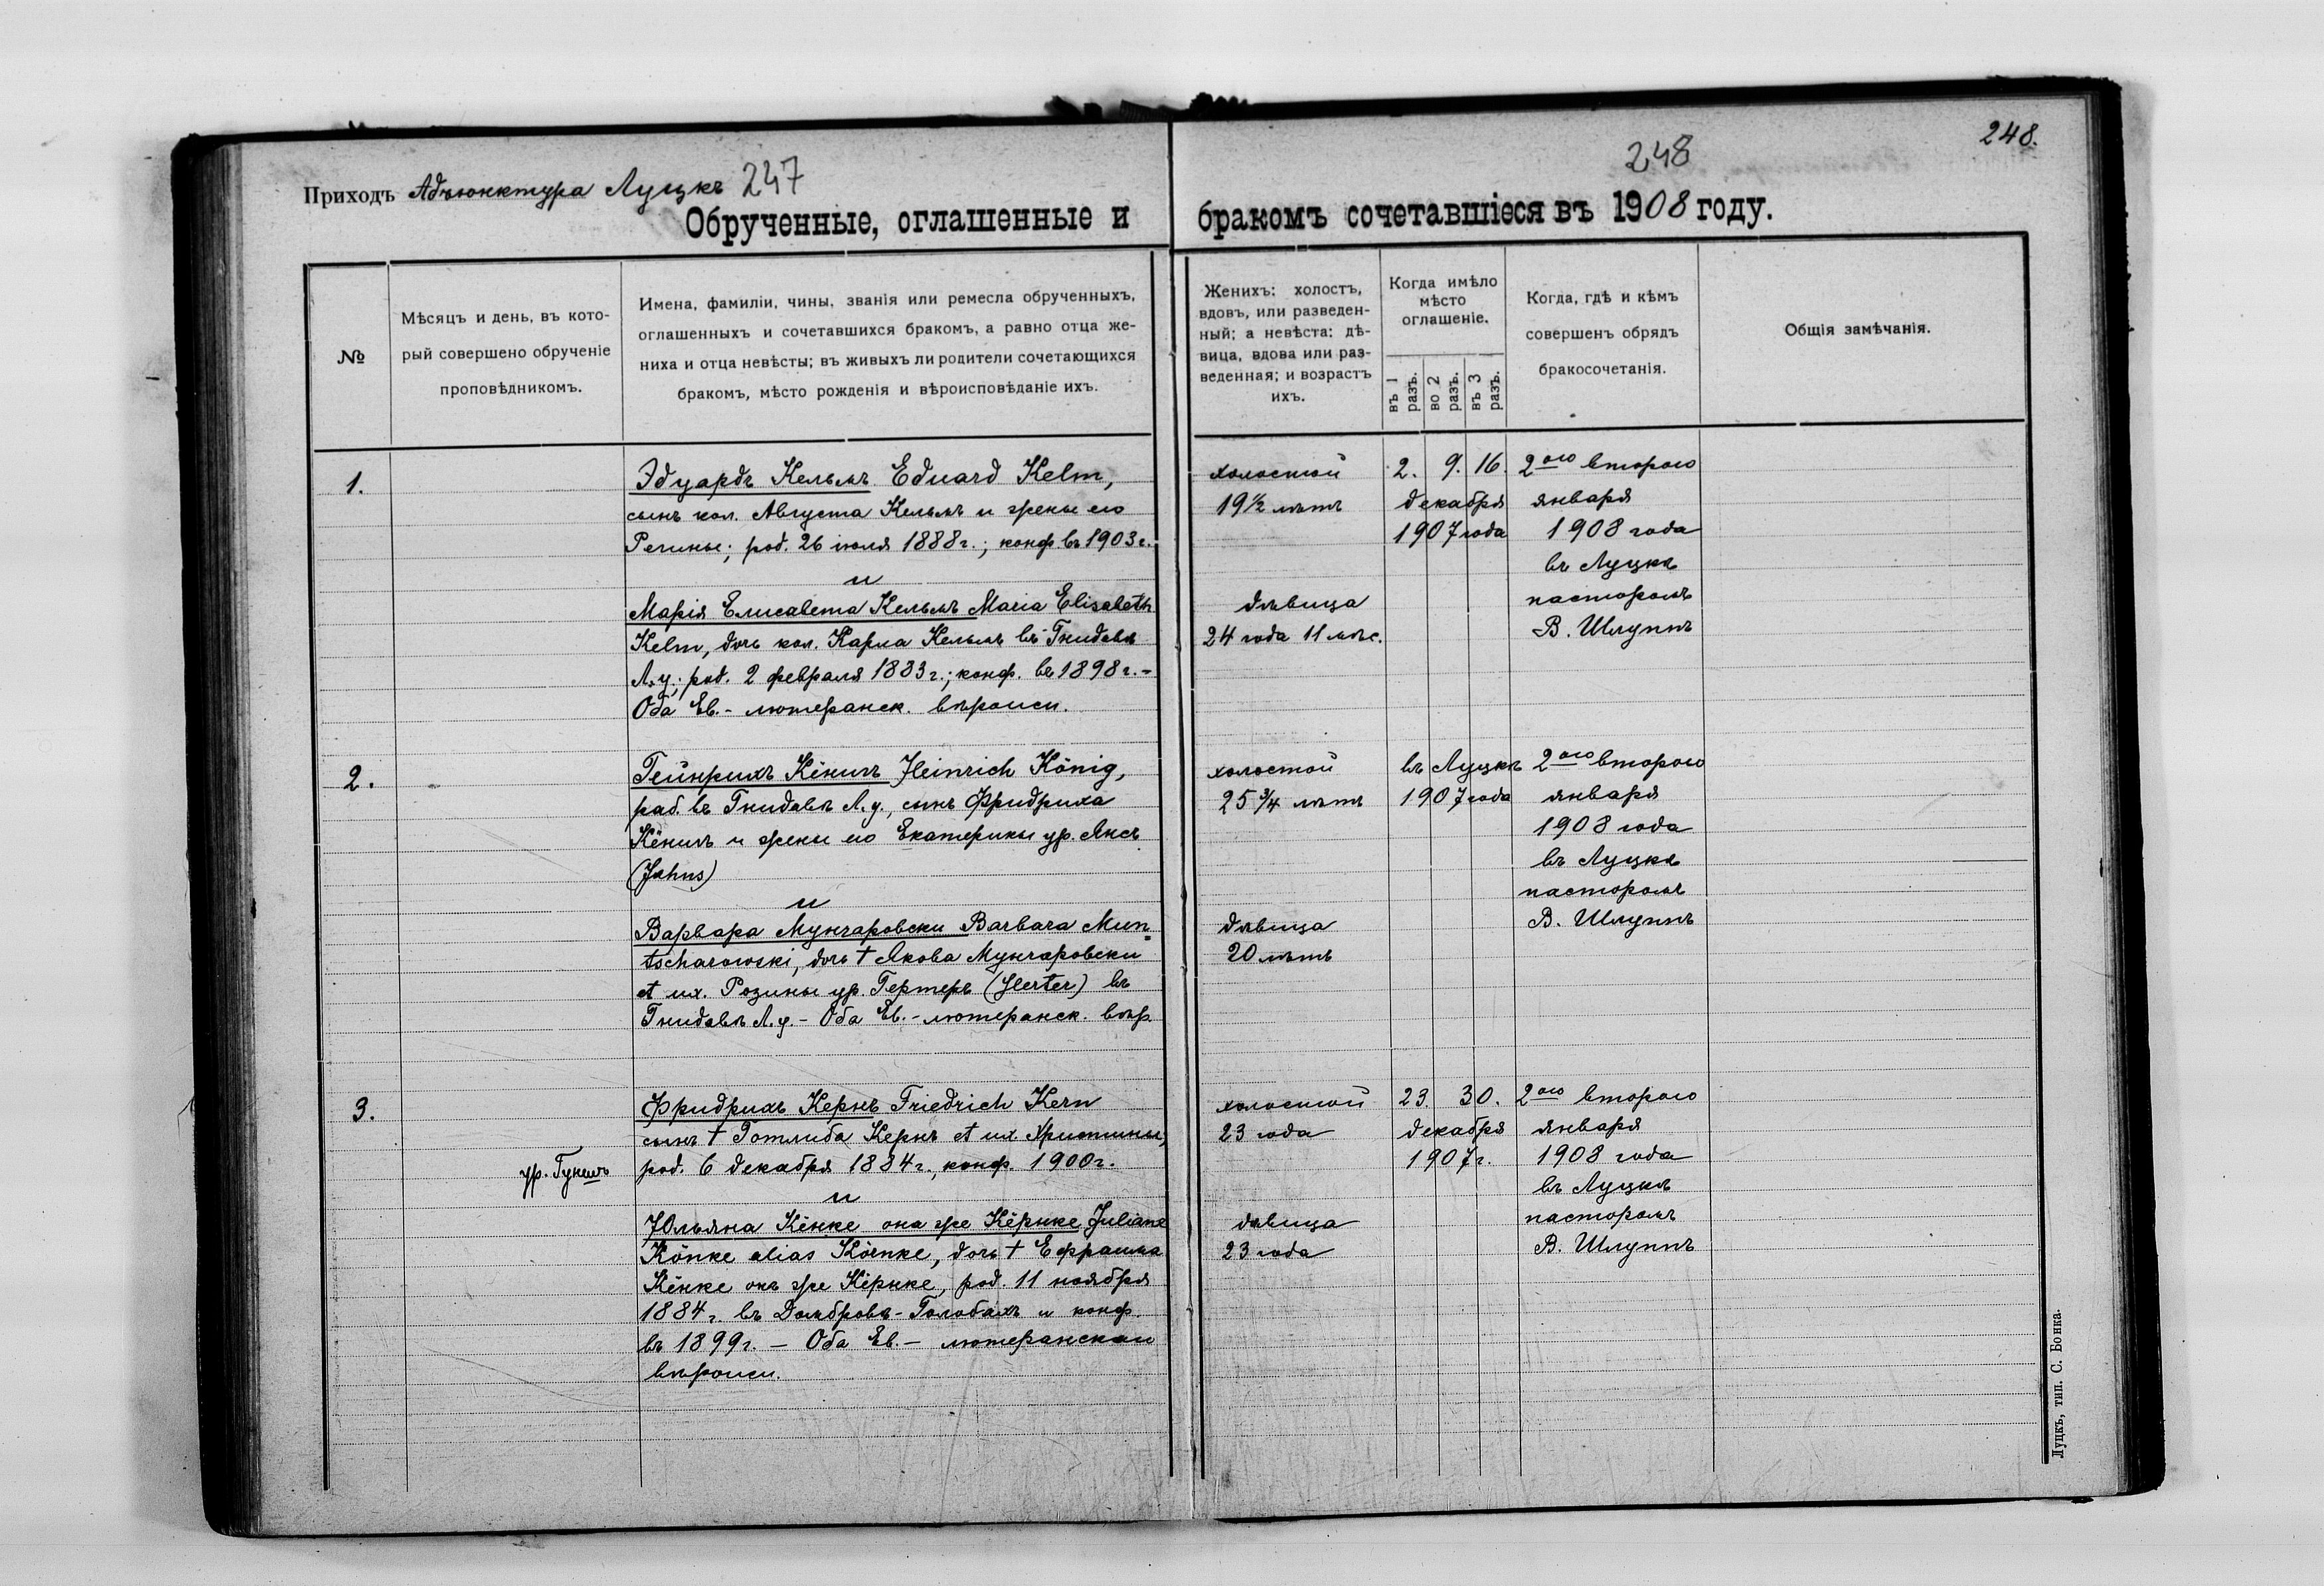 Приходъ Адъюнктура Луцкъ 247
Обрученные, оглашенные и
№
Мѣсяцъ и день, въ кото-
рый совершено обрученіе
проповѣдникомъ.
Имена, фамиліи, чины, званія или ремесла обрученныхъ,
оглашенныхъ и сочетавшихся бракомъ, а равно отца же-
ниха и отца невѣсты; въ живыхъ ли родители сочетающихся
бракомъ, мѣсто рожденія и вѣроисповѣданіе ихъ.
1.
Эдуардъ Кельмъ Eduard Kelm,
сынъ кол. Августа Кельмъ и жены его
Регины; род. 26 іюля 1888 г.; конф. въ 1903 г.
и
Марія Елисавета Кельмъ Maria Elisabeth
Kelm, дочь кол. Карла Кельмъ въ Гнидавѣ
Л. у.; род. 2 февраля 1883 г.; конф. въ 1898 г. -
Оба Ев. - лютеранск. вѣроисп.
2.
Гейнрихъ Кёнигъ Heinrich König,
раб. въ Гнидавѣ Л. у., сынъ Фридриха
Кёнигъ и жены его Екатерины ур. Янсъ
(Jahns)
и
Варвара Мунчаровски Barbara Mun=
tscharowski, дочь † Якова Мунчаровски
et ux. Розины ур. Гертеръ (Herter) въ
Гнидавѣ Л. у. - Оба Ев. - лютеранск. вѣр.
3.
Фридрихъ Кернъ Friedrich Kern
сынъ † Готлиба Кернъ et ux Христины,
ур. Гункель
род. 6 декабря 1884 г., конф. 1900 г.
и
Юльяна Кёнке она же Кёрнке Juliane
Könke alias Körnke, дочь † Ефраима
Кёнке онъ же Кёрнке, род. 11 ноября
1884 г. въ Домбровѣ-Голобахъ и конф.
въ 1899 г. - Оба Ев. - лютеранскаи
вѣроисп.
248
248.
бракомъ сочетавшіеся въ 1908 году.
Женихъ: холостъ,
вдовъ, или разведен-
ный; а невѣста: дѣ-
вица, вдова или раз-
веденная; и возрастъ
ихъ.
Когда имѣло
мѣсто
оглашеніе.
въ 1 разъ.
во 2 разъ.
въ 3 разъ.
Когда, гдѣ и кѣмъ
совершенъ обрядъ
бракосочетанія.
Общія замѣчанія.
холостой
19 1/2 лѣтъ
дѣвица
24 года 11 мѣс.
2. 9. 16.
декабря
1907 года
2ого второго
января
1908 года
въ Луцкѣ
пасторомъ
В. Шлуппъ
холостой
25 3/4 лѣтъ
дѣвица
20 лѣтъ
въ Луцкѣ
1907 года
2ого второго
января
1908 года
въ Луцкѣ
пасторомъ
В. Шлуппъ
холостой
23 года
дѣвица
23 года
23. 30.
декабря
1907 г.
2ого второго
января
1908 года
въ Луцкѣ
пасторомъ
В. Шлуппъ
Луцкъ, тип. С. Бонка.